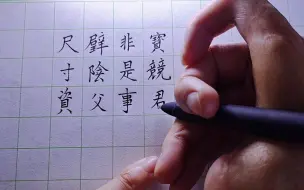 尺璧非寶
寸陰是競
資父事君